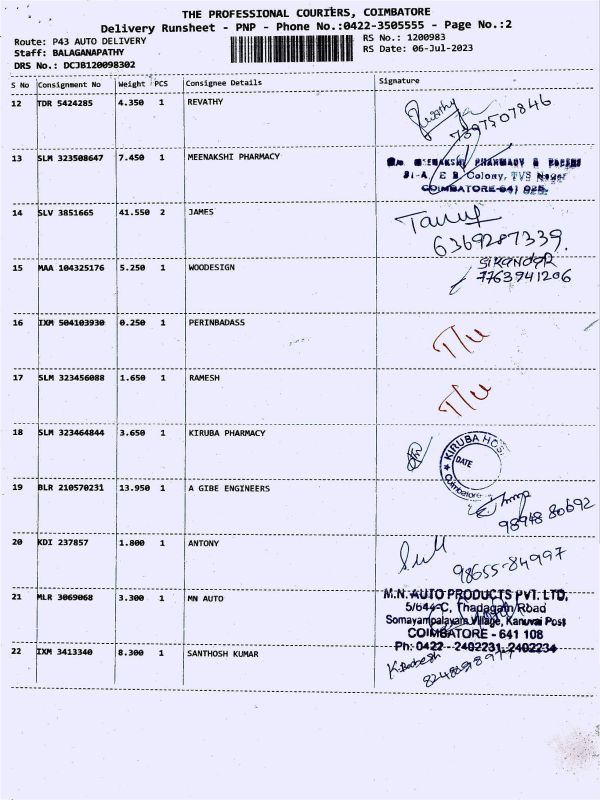 THE PROFESSIONAL COURIERS, COIMBATORE
Delivery Runsheet - PNP - Phone No.:0422-3505555 - Page No.:2
Route: P43 AUTO DELIVERY
RS No.: 1200983
Staff: BALAGANAPATHY
RS Date: 06-Jul-2023
DRS No.: DCJB120098302
S No Consignment No Weight PCS Consignee Details Signature
12 TDR 5424285 4.350 1 REVATHY
Revathy
7397507846
13 SLM 323508647 7.450 1 MEENAKSHI PHARMACY
MEENAKSHI PHARMACY &
Colony, TVS Nagar
COIMBATORE-641 025.
14 SLV 3851665 41.550 2 JAMES
6369287339.
15 MAA 104325176 5.250 1 WOODESIGN
SIKANDAR
7763941206
16 IXM 504103930 0.250 1 PERINBADASS
T/U
17 SLM 323456088 1.650 1 RAMESH
T/U
18 SLM 323464844 3.650 1 KIRUBA PHARMACY
KIRUBA HOS
DATE
Coimbatore
19 BLR 210570231 13.950 1 A GIBE ENGINEERS
98948 80692
20 KDI 237857 1.800 1 ANTONY
98655-84997
21 MLR 3069068 3.300 1 MN AUTO
M.N. AUTO PRODUCTS PVT. LTD,
5/644-C, Thadagam Road
Somayampalayam Village, Kanuvai Post
COIMBATORE - 641 108
Ph: 0422 - 2402231, 2402234
22 IXM 3413340 8.300 1 SANTHOSH KUMAR